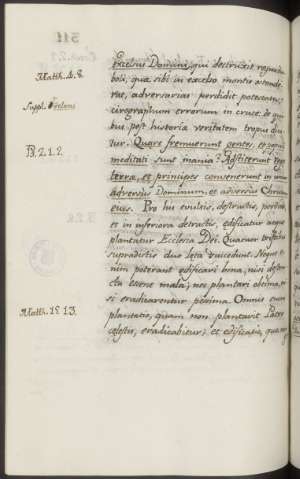 excelsus Domini, qui destruxit regna dia-
Math. 4. 8.
boli, quæ sibi in excelso montis ostende-
rat, adversarias perdidit potestates,
Suppl.
cirographum errorum in cruce: de qui-
bus post historia veritatem tropus dici-
tur. Quare fremuerunt gentes, et populi
Ps. 2. 1. 2.
meditati sunt inania? Adstiterunt reges
terræ, et principes convenerunt in unum
adversus Dominum, et adversus Christum
eius. Pro his evulsis, destructis, perditis,
et in inferiora detrusis, edificatur atque
plantatur Ecclesia Dei.
supradictis duo læta succedunt. Neque e-
nim poterant edificari bona, nisi destru-
cta essent mala; nec plantari obtima, ni-
si eradicarentur pessima. Omnis enim
Math. 15. 13.
plantatio, quam non plantavit Pater
celestis, eradicabitur; et edificatio, quæ